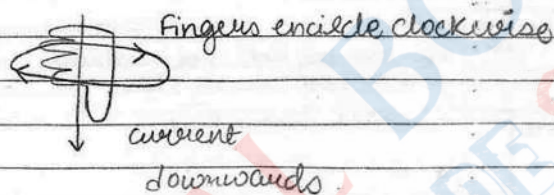 Fingers encircle clockwise
current
downwards.